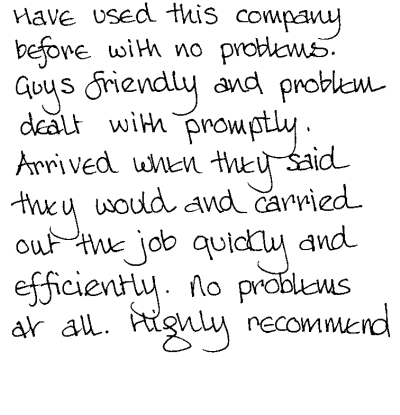 Have used this company
before with no problems.
Guys friendly and problem
dealt with promptly.
Arrived when they said
they would and carried
out the job quickly and
efficiently. No problems
at all. Highly recommend